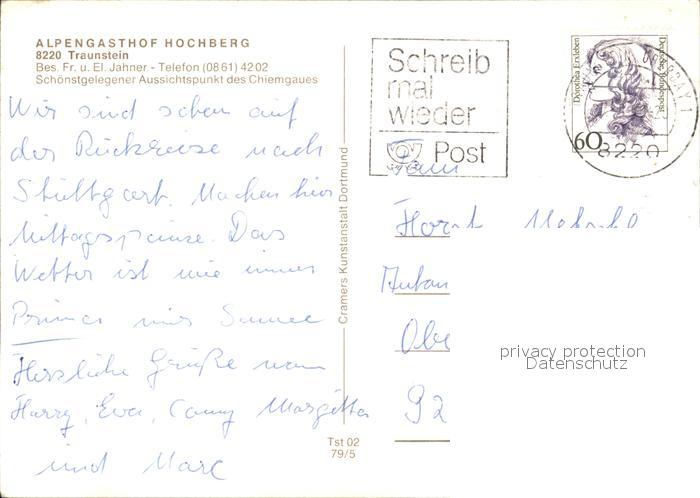 ALPENGASTHOF HOCHBERG
8220 Traunstein
Bes. Fr. u. El. Jahner - Telefon (0861) 4202
Schönstgelegener Aussichtspunkt des Chiemgaues
Wir sind schon auf
der Rückreise nach
Stuttgart. Machen hier
Mittagspause. Das
Wetter ist wie immer
Prima
Herzliche Grüße von
Harry, Eva, Conny Margitta
und Marc
Cramers Kunstanstalt Dortmund
Tst 02
79/5
Schreib
mal
wieder
Post
Dorothea Erxleben
Deutsche Bundespost
60
8220
Fam
Horst
Obe
92
privacy protection
Datenschutz